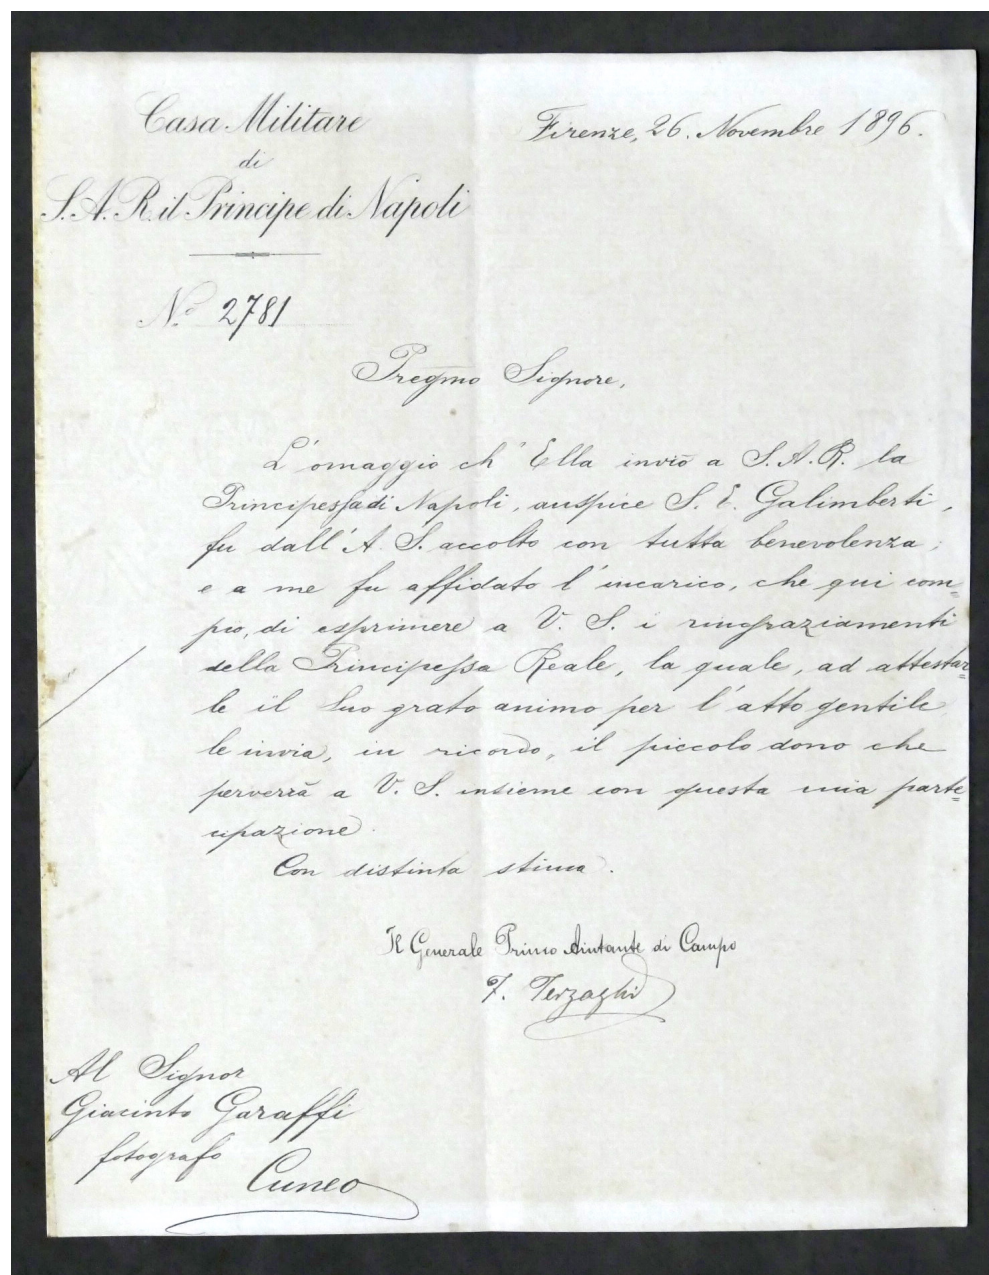 Casa Militare
di
S. A. R. il Principe di Napoli
Firenze, 26. Novembre 1896.
No 2781
Pregmo Signore,
L'omaggio ch'Ella inviò a S. A. R. la
Principessa di Napoli, auspice S. E. Galimberti,
fu dall'A. S. accolto con tutta benevolenza;
e a me fu affidato l'incarico, che qui com=
pio, di esprimere a V. S. i ringraziamenti
della Principessa Reale, la quale, ad attestar=
le il Suo grato animo per l'atto gentile
le invia, in ricordo, il piccolo dono che
perverrà a V. S. insieme con questa mia parte=
cipazione.
Con distinta stima.
Il Generale Primo Aiutante di Campo
F. Terzaghi
Al Signor
Giacinto Garaffi
fotografo
Cuneo